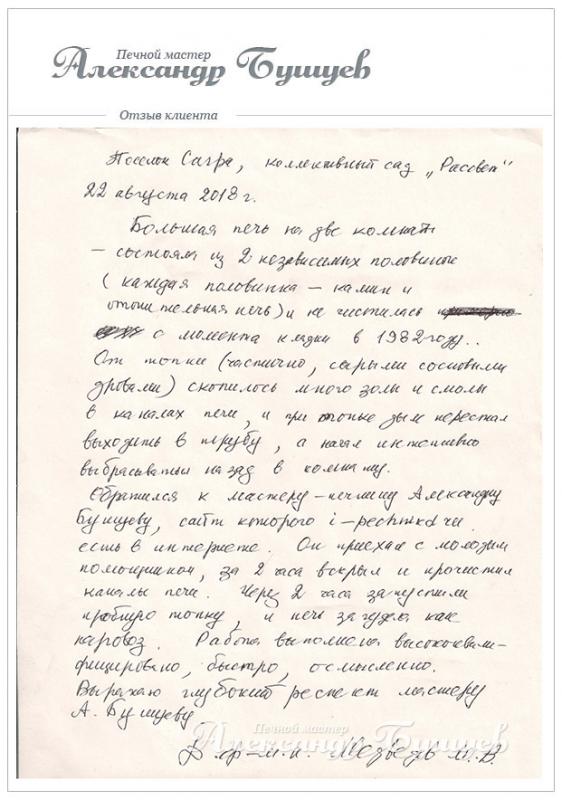 Печной мастер
Александр Бушуев
Отзыв клиента
Поселок Сагра, коллективный сад „Рассвет"
22 августа 2018 г.
Большая печь на две комнаты
– состояла из 2 независимых половинок
(каждая половинка – камин и
отопительная печь) и не чистилась
с момента кладки в 1982 году..
От топки (частично, сырыми сосновыми
дровами) скопилось много золы и смолы
в каналах печи, и при топке дым перестал
выходить в трубу, а начал интенсивно
выбрасываться назад в комнату.
Обратился к мастеру-печнику Александру
Бушуеву, сайт которого
есть в интернете. Он приехал с молодым
помощником, за 2 часа вскрыл и прочистил
каналы печи. Через 2 часа запустили
пробную топку, и печь загудела как
паровоз. Работа выполнена высококвали-
фицировано, быстро, осмысленно.
Выражаю глубокий респект мастеру
А. Бушуеву
Печной мастер
Александр Бушуев
Медведь